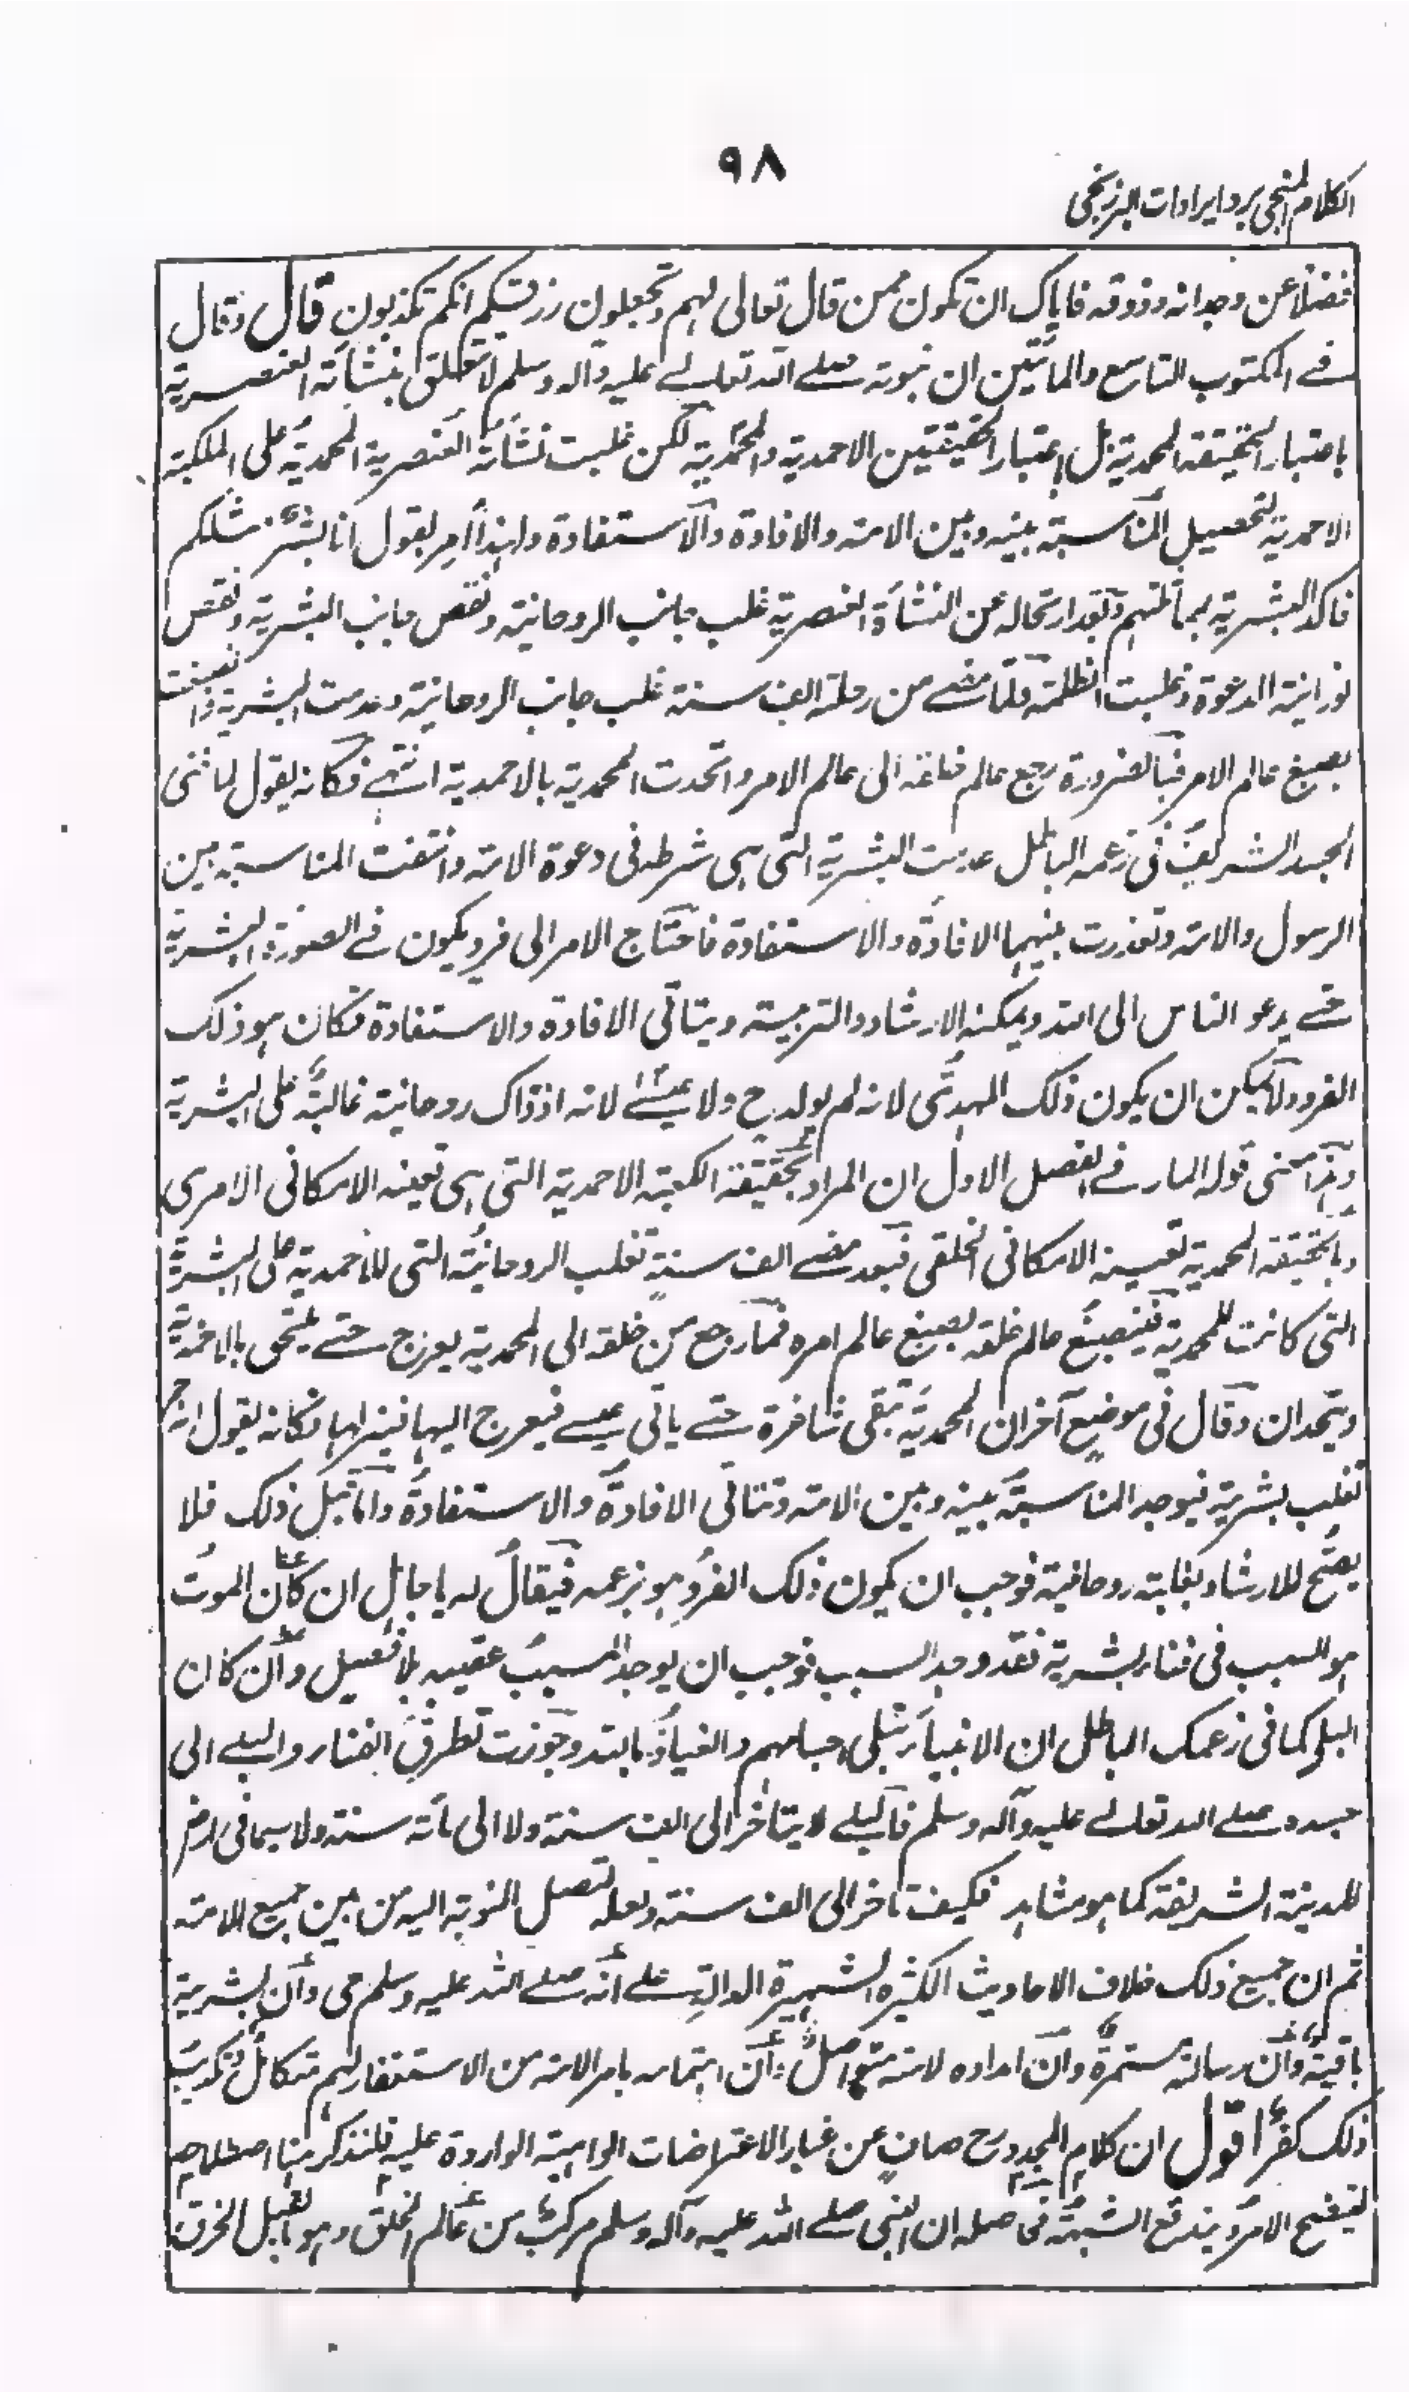 ٩٨
الكلام المنجي برد ايرادات البرزنجي
فضلا عن وجدانه وذوقه فاياك ان تكون ممن قال تعالى لهم وتجعلون رزقكم انكم تكذبون قال وقال
في المكتوب التاسع والمأتين ان نبوته صلى الله تعالى عليه وآله وسلم لا تتعلق بنشأته العنصرية
باعتبار الحقيقة المحمدية بل باعتبار الحقيقتين الاحمدية والمحمدية لكن غلبت نشأته العنصرية المحمدية على الملكية
الاحمدية لتحصيل المناسبة بينه وبين الامة والافادة والاستفادة ولهذا امر بقول انا بشر مثلكم
فاكد البشرية بمماثلتهم وبعد ارتحاله عن النشأة العنصرية غلب جانب الروحانية ونقص جانب البشرية ونقص
نورانية الدعوة وغلبت الظلمة فلما مضى من رحلته الف سنة غلب جانب الروحانية وعدمت البشرية وانصبغت
بصبغ عالم الامر فبالضرورة رجع عالم خلقه الى عالم الامر واتحدت المحمدية بالاحمدية انتهى فكانه يقول لما فنى
الجسد الشريف في زعمه الباطل عدمت البشرية التي هي شرط في دعوة الامة وانتفت المناسبة بين
الرسول والامة وتعذرت بينهما الافادة والاستفادة فاحتاج الامر الى فرد يكون في الصورة البشرية
حتى يدعو الناس الى الله ويمكنه الارشاد والتربية ويتاتى الافادة والاستفادة فكان هو ذلك
الفرد ولا يمكن ان يكون ذلك المهدى لانه لم يولد ح ولا عيسى لانه اذ ذاك روحانية غالبة على البشرية
وهذا معنى قوله المار في الفصل الاول ان المراد بحقيقة الكعبة الاحمدية التي هي تعينه الامكاني الامري
وبالحقيقة المحمدية تعينه الامكاني الخلقي فبعد مضى الف سنة تغلب الروحانية التي للاحمدية على البشرية
التي كانت للمحمدية فينصبغ عالم خلقه بصبغ عالم امره فما رجع من خلقه الى المحمدية يعرج حتى يلتحق بالاحمدية
ويتحدان وقال في موضع آخر ان المحمدية تبقى شاغرة حتى ياتى عيسى فيعرج اليها فينزلها فكانه يقول انه ح
تغلب بشرية فيوجد المناسبة بينه وبين الامة وتتاتى الافادة والاستفادة واما قبل ذلك فلا
يصح للارشاد بغلبته روحانية فوجب ان يكون ذلك الفرد هو بزعمه فيقال له يا جاهل ان كان الموت
هو السبب في فناء بشرية فقد وجد السبب فوجب ان يوجد المسبب عقيبه بلا فصيل وان كان
البلى كما في زعمك الباطل ان الانبياء تبلى اجسامهم والعياذ بالله وجوزت تطرق الفناء والبلى الى
جسده صلى الله تعالى عليه وآله وسلم فالبلى لا يتاخر الى الف سنة ولا الى مأته سنة ولا سيما في ارض
المدينة الشريفة كما هو مشاهد فكيف تاخر الى الف سنة ولعله لتصل النوبة اليه من بين جميع الامة
ثم ان جميع ذلك خلاف الاحاديث الكثيرة الشهيرة الدالة على انه صلى الله عليه وسلم حي وان بشرية
باقية وان رسالته مستمرة وان امداده لامته متواصل وان اهتمامه بامر الامة من الاستغفار لهم متكامل وتكذيب
ذلك كفر اقول ان كلام المجدد رح صاف عن غبار الاعتراضات الواهية الواردة عليه فلنذكر هنا اصطلاحه
ليتضح الامر ويندفع الشبهة فحاصله ان النبي صلى الله عليه وآله وسلم مركب من عالم الخلق وهو ما يقبل الخرق